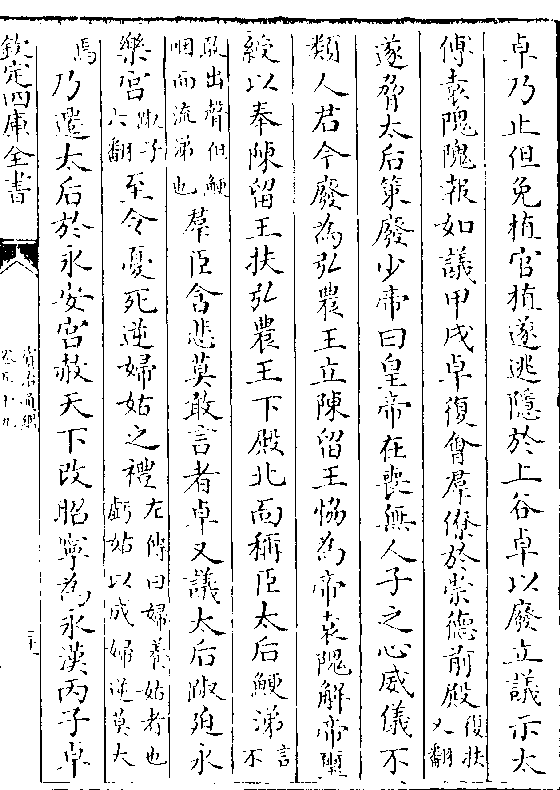 卓乃止但免植官植遂逃隱於上谷卓以廢立議示太
傅袁隗隗報如議甲戌卓復會羣僚於崇德前殿復扶又翻
遂脅太后策廢少帝曰皇帝在喪無人子之心威儀不
類人君今廢為弘農王立陳留王恊為帝袁隗解帝璽
綬以奉陳留王扶弘農王下殿北面稱臣太后鯁涕言不
敢出聲但鯁咽而流涕也羣臣含悲莫敢言者卓又議太后踧迫永
樂宫踧子六翻至令憂死逆婦姑之禮左傳曰婦養姑者也虧姑以成婦逆莫大
焉乃遷太后於永安宫赦天下改昭寧為永漢丙子卓
欽定四庫全書
資治通鑑
卷五十九